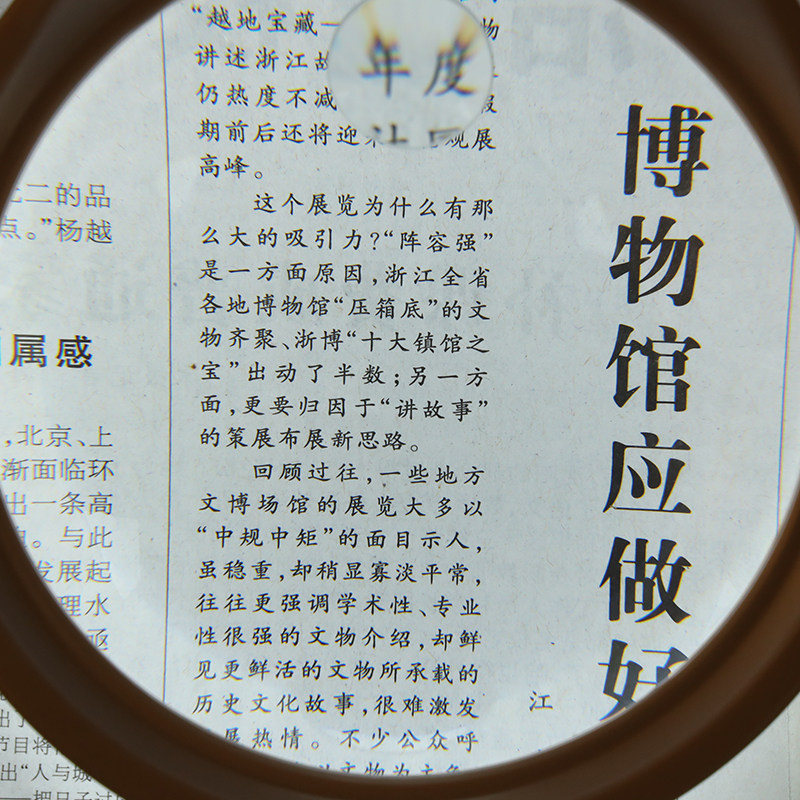 “越地宝藏—
讲述浙江故
仍热度不减
期前后还将迎来 观展
高峰。
年度
这个展览为什么有那
么大的吸引力?“阵容强”
是一方面原因,浙江全省
各地博物馆“压箱底”的文
物齐聚、浙博“十大镇馆之
宝”出动了半数;另一方
面,更要归因于“讲故事”
的策展布展新思路。
回顾过往,一些地方
文博场馆的展览大多以
“中规中矩”的面目示人,
虽稳重,却稍显寡淡平常,
往往更强调学术性、专业
性很强的文物介绍,却鲜
见更鲜活的文物所承载的
历史文化故事,很难激发
展热情。不少公众呼
文物为主角
博物馆应做好
江
二的品
点。”杨越
属感
,北京、上
渐面临环
出一条高
。与此
发展起
理水
亟
出了
节目将
出“人与城
——把日子过